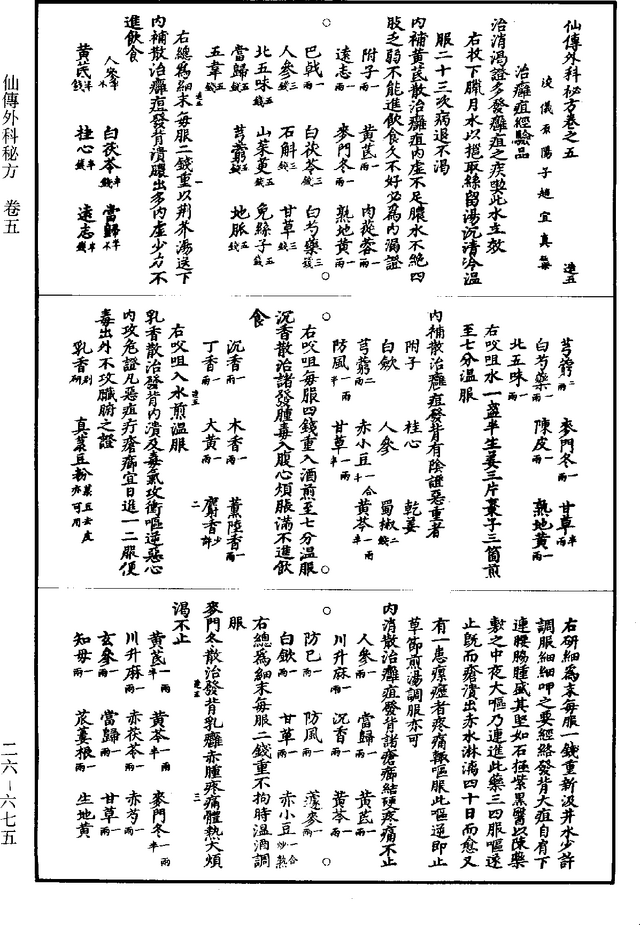 仙傳外科秘方卷之五 造五
浚儀原陽子趙宜真集
治癰疽經驗品
治消渴證多發癰疽之疾喫此水立效
右收下臘月水以挹取絲留湯沉清冷温
服二十三次病退不渴
内補黄芪散治癰疽内虚不足膿水不絶四
肢乏弱不能進飲食久不好必為内漏證
附子一兩 黄芪一兩 肉蓯蓉一兩
遠志一兩 麥門冬一兩 熟地黄一兩
巴戟一兩 白茯苓三錢 白芍藥三錢
人參三錢 石斛三錢 甘草三錢
北五味五錢 山茱萸五錢 兔絲子五錢
當歸五錢 芎藭五錢 地脈五錢
五韋五錢
右總為細末每服二錢重以荆芥湯送下
内補散治癰疽發背潰膿出多内虚少力不
進飲食
人參 白茯苓半錢 當歸
黄芪半錢 桂心半錢 遠志半錢
芎藭二兩 麥門冬一兩 甘草半兩
白芍藥一兩 陳皮一兩 熟地黄一兩
北五味一兩
右㕮咀水一盞半生薑三片棗子三箇煎
至七分温服
内補散治癰疽發背有陰證惡重者
附子 桂心 乾薑
白歛 人參 蜀椒二錢
芎藭二兩 赤小豆一合 黄芩一兩半
防風一兩半 甘草一兩半
右㕮咀每服四錢重入酒煎至七分温服
沉香散治諸發腫毒入腹心煩脹滿不進飲
食
沉香一兩 木香一兩 薰陸香一兩
丁香一兩 大黄一兩 麝香少許
右㕮咀入水煎温服
乳香散治發背内潰及毒氣攻衝嘔逆惡心
内攻危證凡惡疽疔瘡癤宜日進一二服便
毒出外不攻臟腑之證
乳香別研 真菉豆粉菉豆去皮亦可用
右研細為末每服一錢重新汲井水少許
調服細細呷之要經絡發背大疽自有下
連腰脇腫盛其堅如石極紫黑醫以陳藥
敷之中夜大嘔乃連進此藥三四服嘔遂
止既而瘡潰出赤水淋漓四十日而愈又
有一患瘰癧者疼痛輒嘔服此嘔逆即止
草節煎湯調服亦可
内消散治癰疽發背諸瘡癤結硬疼痛不止
人參一兩 當歸一兩 黄芪一兩
川升麻一兩 沉香一兩 黄芩一兩
防已一兩 防風一兩 蘧麥一兩
白歛一兩 甘草一兩 赤小豆一合炒熟
右總為細末每服二錢重不拘時温酒調
服
麥門冬散治發背乳癰赤腫疼痛體熱大煩
渴不止
黄芪一兩半 黄芩一兩半 麥門冬一兩半
川升麻一兩 赤茯苓一兩 赤芍一兩
玄參一兩 當歸一兩 甘草一兩
知母一兩 苽蔞根一兩 生地黄
仙傳外科秘方 卷五
二六-六七五